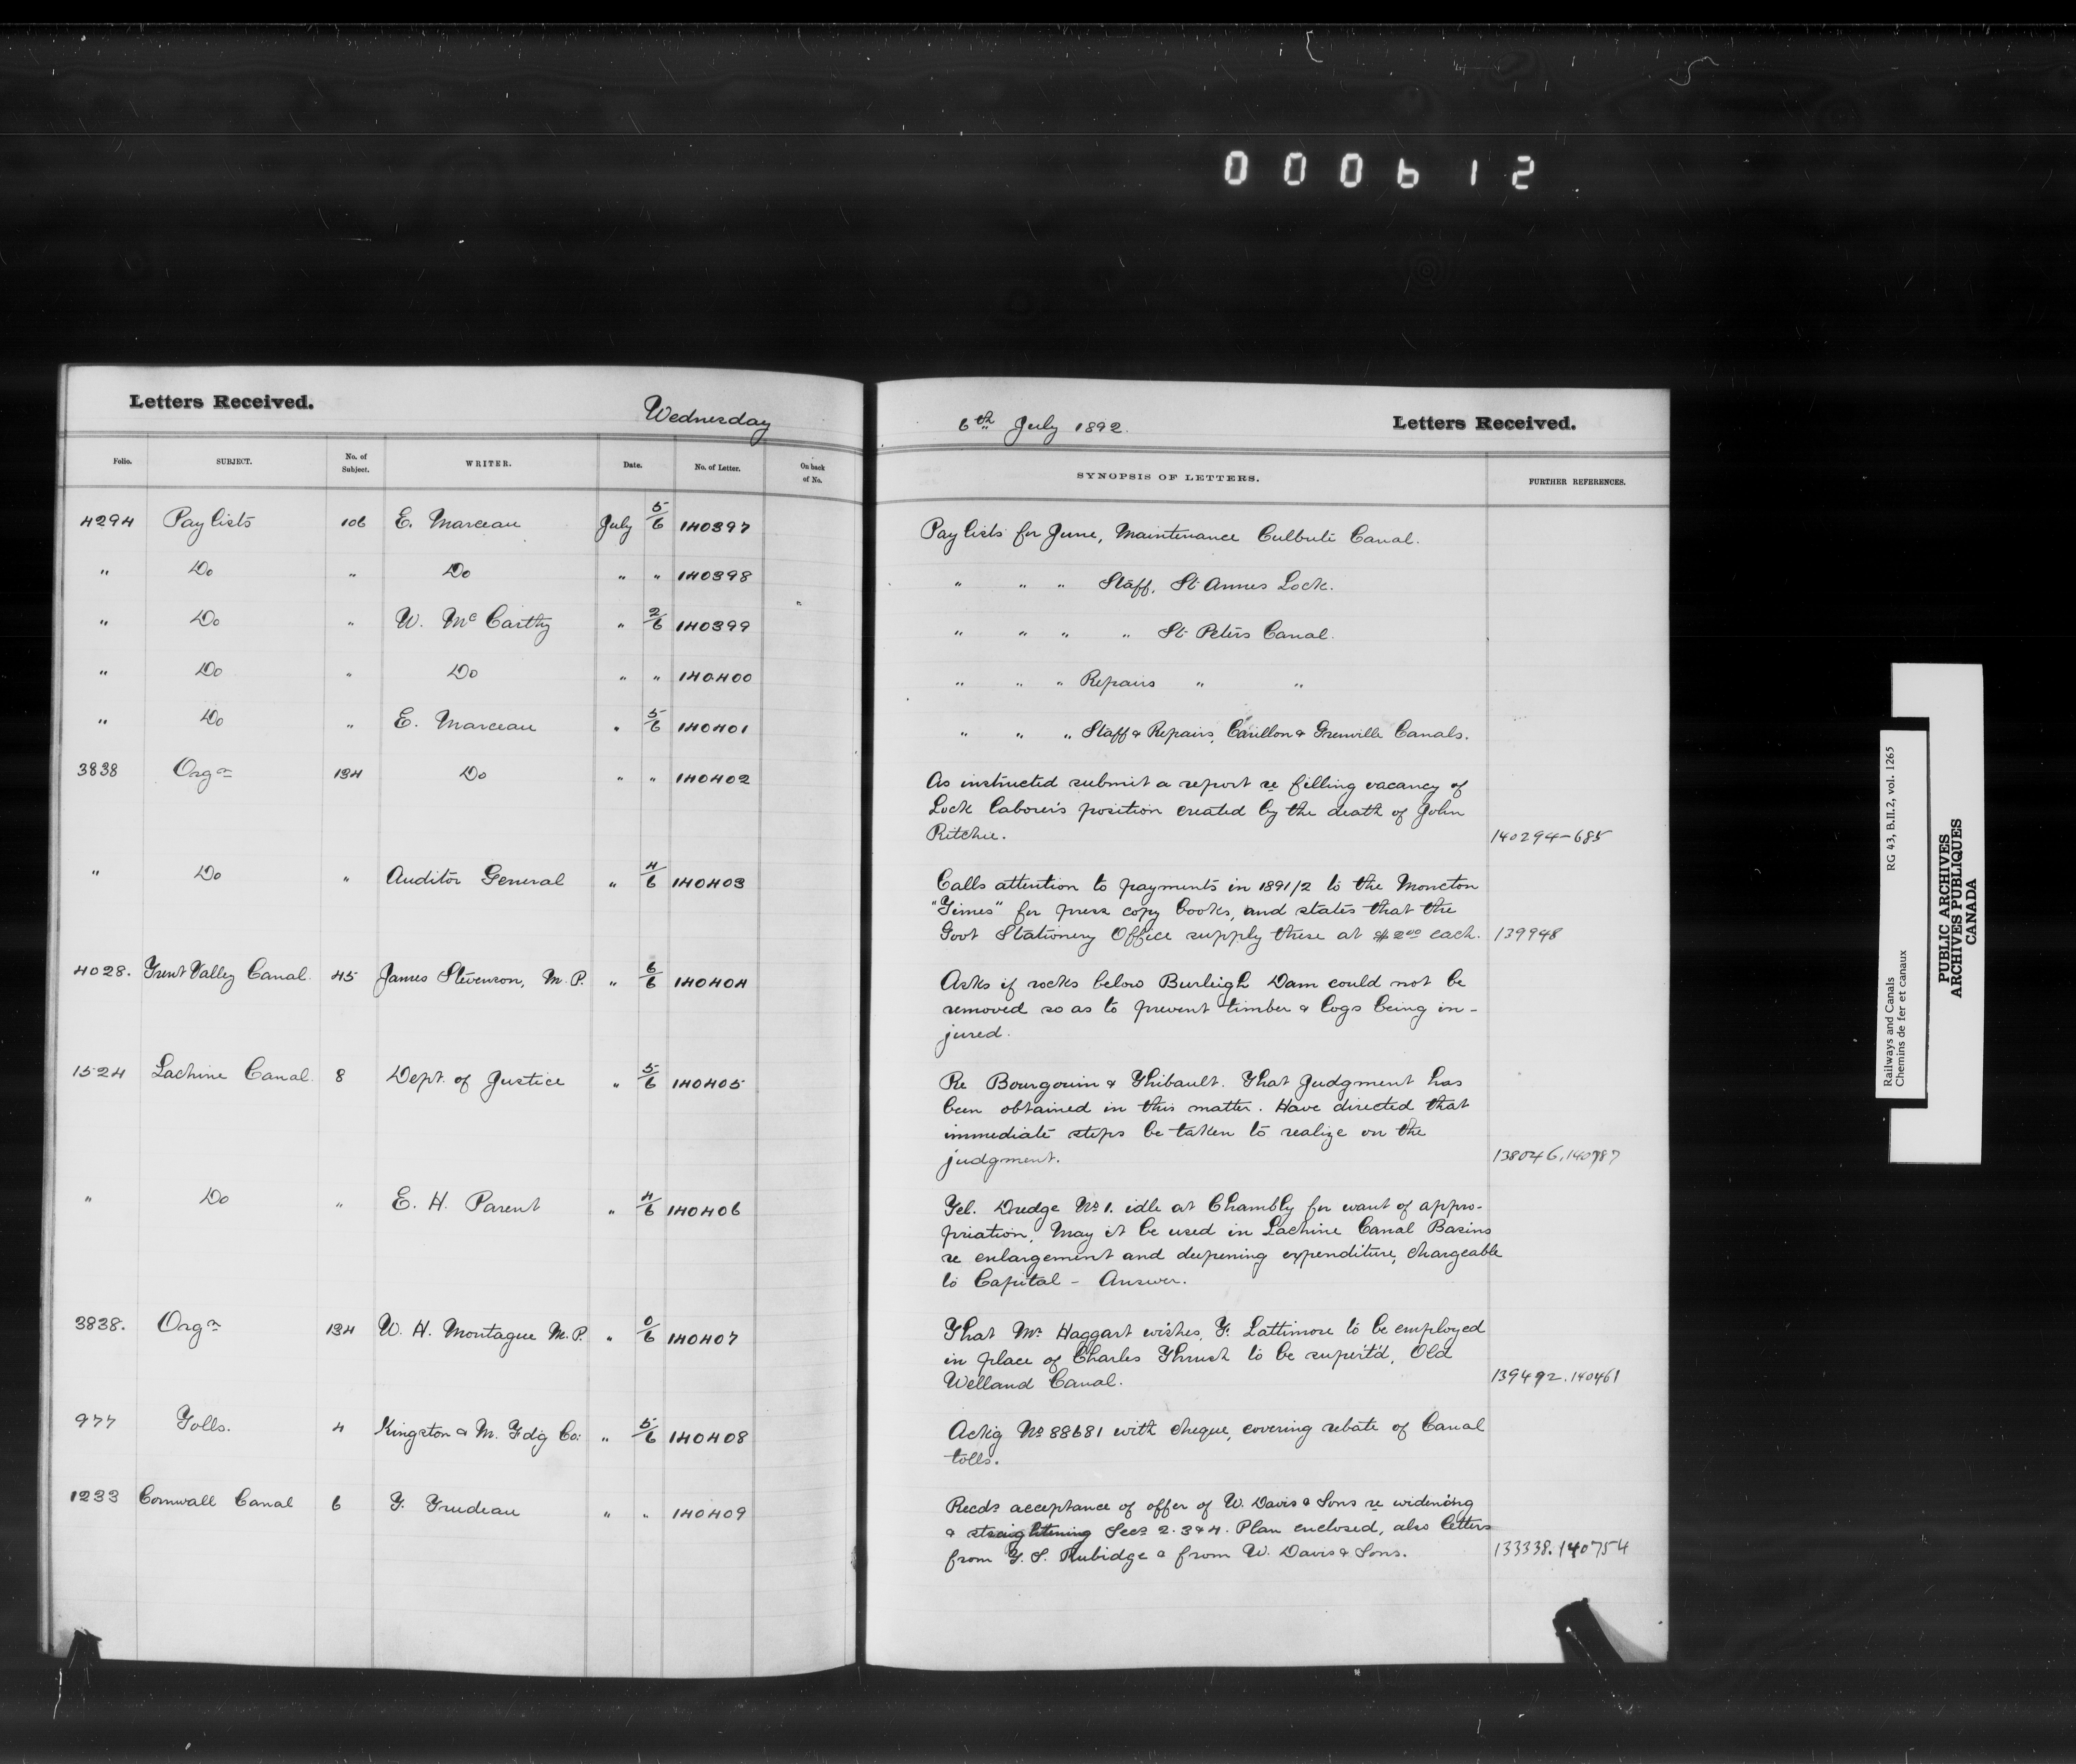 000612
Letters Received.
Wednesday
6th July 1892.
Letters Received.
Folio. SUBJECT. No. of Subject. WRITER. Date. No. of Letter. On back of No. SYNOPSIS OF LETTERS. FURTHER REFERENCES.
4294 Pay lists 106 E. Marceau July 5/6 140397 Pay lists for June, Maintenance Culbute Canal.
" Do " Do " " 140398 " " " Staff, St Annes Lock.
" Do " W. McCarthy " 2/6 140399 " " " " St Peters Canal.
" Do " Do " " 140400 " " " Repairs " "
" Do " E. Marceau " 5/6 140401 " " " Staff & Repairs, Carillon & Grenville Canals.
3838 Orgn 134 Do " " 140402 As instructed submit a report re filling vacancy of
Lock laborer's position created by the death of John
Ritchie. 140294-685
" Do " Auditor General " 4/6 140403 Calls attention to payments in 1891/2 to the Moncton
"Times" for press copy books, and states that the
Govt Stationery Office supply these at $2.00 each. 139948
4028. Trent Valley Canal. 45 James Stevenson, M.P. " 6/6 140404 Asks if rocks below Burleigh Dam could not be
removed so as to prevent timber & logs being in-
jured.
1524 Lachine Canal. 8 Dept. of Justice " 5/6 140405 Re Bourgouin & Thibault. That judgment has
been obtained in this matter. Have directed that
immediate steps be taken to realize on the
judgment. 138046.140787
" Do " E. H. Parent " 4/6 140406 Tel. Dredge No 1. idle at Chambly for want of appro-
priation. May it be used in Lachine Canal Basins
re enlargement and deepening expenditure, chargeable
to Capital - Answer.
3838. Orgn 134 W. H. Montague M.P. " 0/6 140407 That Mr. Haggart wishes, T. Lattimore to be employed
in place of Charles Thrush to be supert'd, Old
Welland Canal. 139492.140461
977 Tolls. 4 Kingston & M. Fdg Co: " 5/6 140408 Ackg No 88681 with cheque, covering rebate of Canal
tolls.
1233 Cornwall Canal 6 T. Trudeau " " 140409 Recds acceptance of offer of W. Davis & Sons re widening
& straightening Secs 2. 3 & 4. Plan enclosed, also letters
from T. S. Rubidge & from W. Davis & Sons. 133338.140754
Railways and Canals RG 43, B.II.2, vol. 1265
Chemins de fer et canaux
PUBLIC ARCHIVES
ARCHIVES PUBLIQUES
CANADA